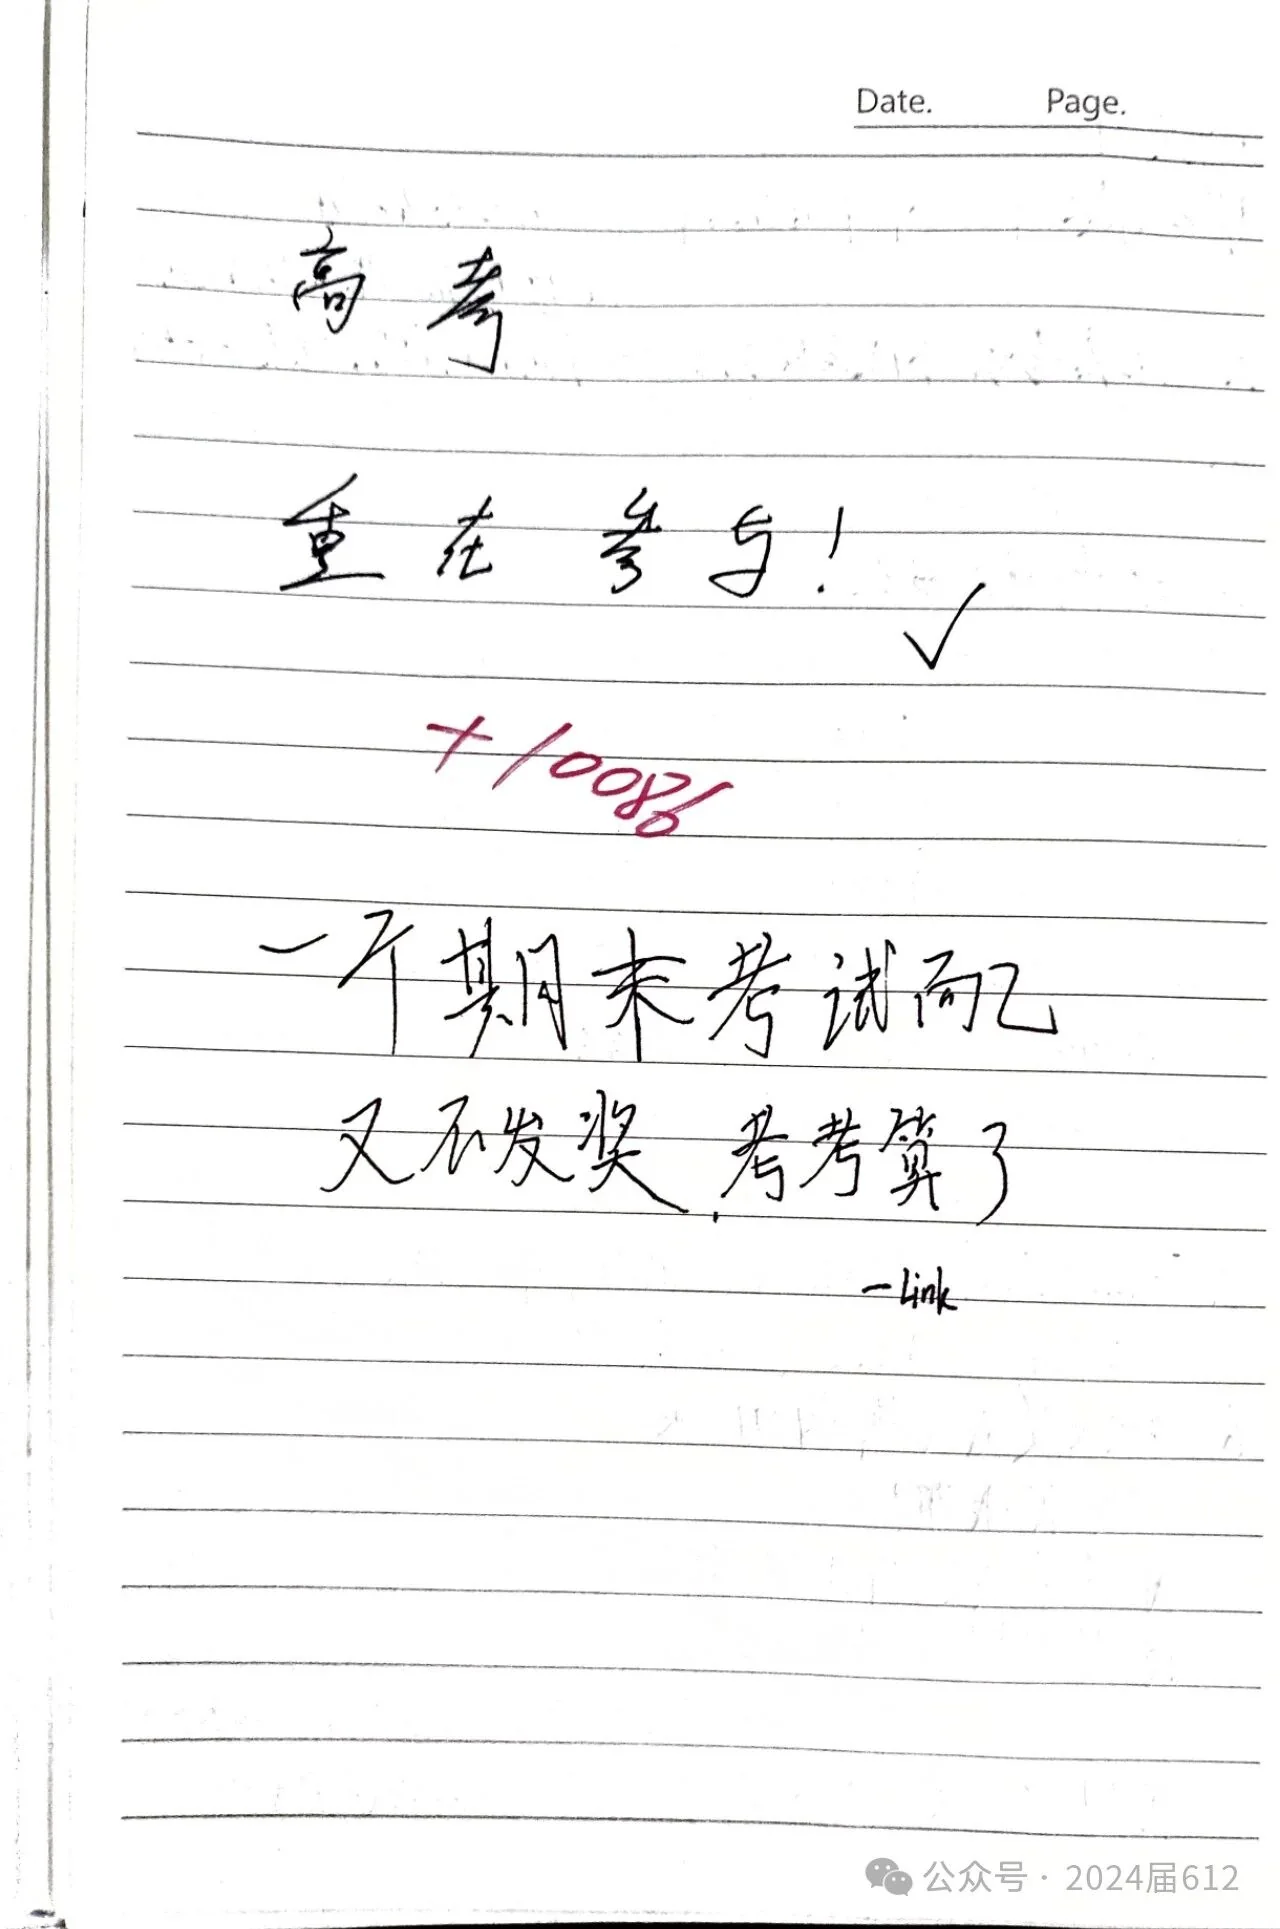 Date. Page.
高考
重在参与!
✓
+10086
一个期末考试而已
又不发奖,考考算了
-Link
公众号·2024届612